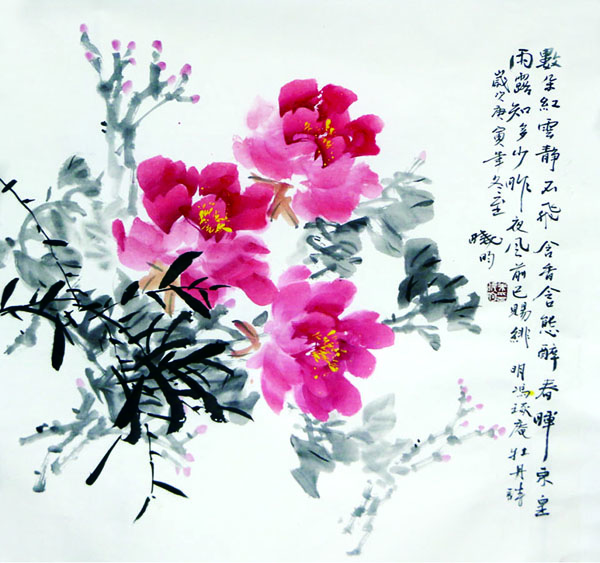 數朵紅雲靜不飛含香含態醉春暉东皇
雨露知多少昨夜风前已賜緋 明馮琢庵牡丹詩
歲次庚寅年冬至
曉昀